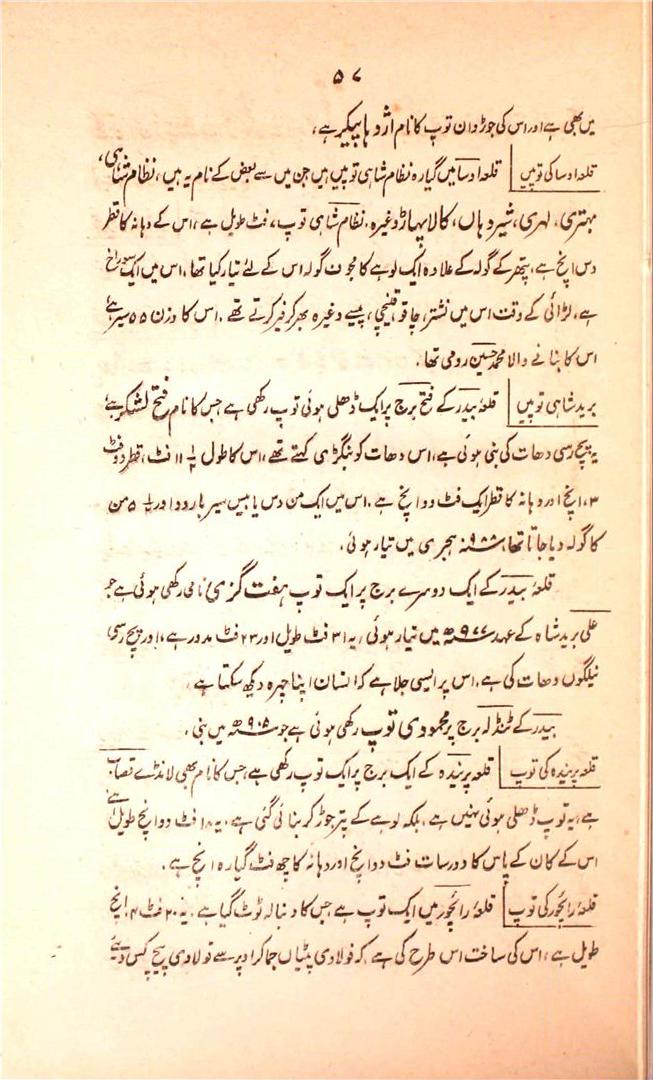 ۵۷
میں بھی ہے اور اس کی جوڑوان توپ کا نام اژدہا پیکر ہے،
قلعہ اوسا کی توپیں قلعہ اوسا میں گیارہ نظام شاہی توپیں ہیں جن میں سے بعض کے نام یہ ہیں، نظام شاہی،
مہتری، لہری، شیر دہاں، کالا پہاڑ وغیرہ، نظام شاہی توپ ۷ فٹ طویل ہے، اس کے دہانہ کا قطر
دس انچ ہے، پتھر کے گولہ کے علاوہ ایک لوہے کا مجوف گولہ اس کے لئے تیار کیا تھا، اس میں ایک سوراخ
ہے، لڑائی کے وقت اس میں نشتر، چاقو، قینچی، پیسے وغیرہ بھر کر فیر کرتے تھے، اس کا وزن ۵۵ سیر ہے
اس کا بنانے والا محمد حسین رومی تھا،
برید شاہی توپیں قلعہ بیدر کے فتح برج پر ایک ڈھلی ہوئی توپ رکھی ہے جس کا نام فتح لشکر ہے
یہ پیچ رسی دھات کی بنی ہوئی ہے، اس دھات کو بنگڑی کہتے تھے، اس کا طول ۱۱ فٹ، قطر دو فٹ
۳، انچ اور دہانہ کا قطر ایک فٹ دو انچ ہے، اس میں ایک من دس یا بیس سیر بارود اور ۵ من
کا گولہ دیا جاتا تھا، ۹۸۸ ہجری میں تیار ہوئی،
قلعہ بیدر کے ایک دوسرے برج پر ایک توپ ہفت گزی نامی رکھی ہوئی ہے جو
علی برید شاہ کے عہد ۹۷۷ھ میں تیار ہوئی، یہ ۳۱ فٹ طویل اور ۲۳ فٹ مدور ہے، اور پیچ رسی
نیلگوں دھات کی ہے، اس پر ایسی جلا ہے کہ انسان اپنا چہرہ دیکھ سکتا ہے،
بیدر کے ٹنڈلہ برج پر محمودی توپ رکھی ہوئی ہے جو ۹۰۵ھ میں بنی،
قلعہ پرنیدہ کی توپ قلعہ پرنیدہ کے ایک برج پر ایک توپ رکھی ہے، جس کا نام بھی لانڈے قصاب
ہے، یہ توپ ڈھلی ہوئی نہیں ہے، بلکہ لوہے کے پتر جوڑ کر بنائی گئی ہے، یہ ۱۸ فٹ دو انچ طویل ہے
اس کے کان کے پاس کا دور سات فٹ دو انچ اور دہانہ کا چھ فٹ گیارہ انچ ہے،
قلعہ رائچور کی توپ قلعہ رائچور میں ایک توپ ہے جس کا دنبالہ ٹوٹ گیا ہے، یہ ۲۰ فٹ ۴ انچ
طویل ہے، اس کی ساخت اس طرح کی ہے کہ فولادی پٹیاں جما کر اوپر سے فولادی پیچ کس دیئے